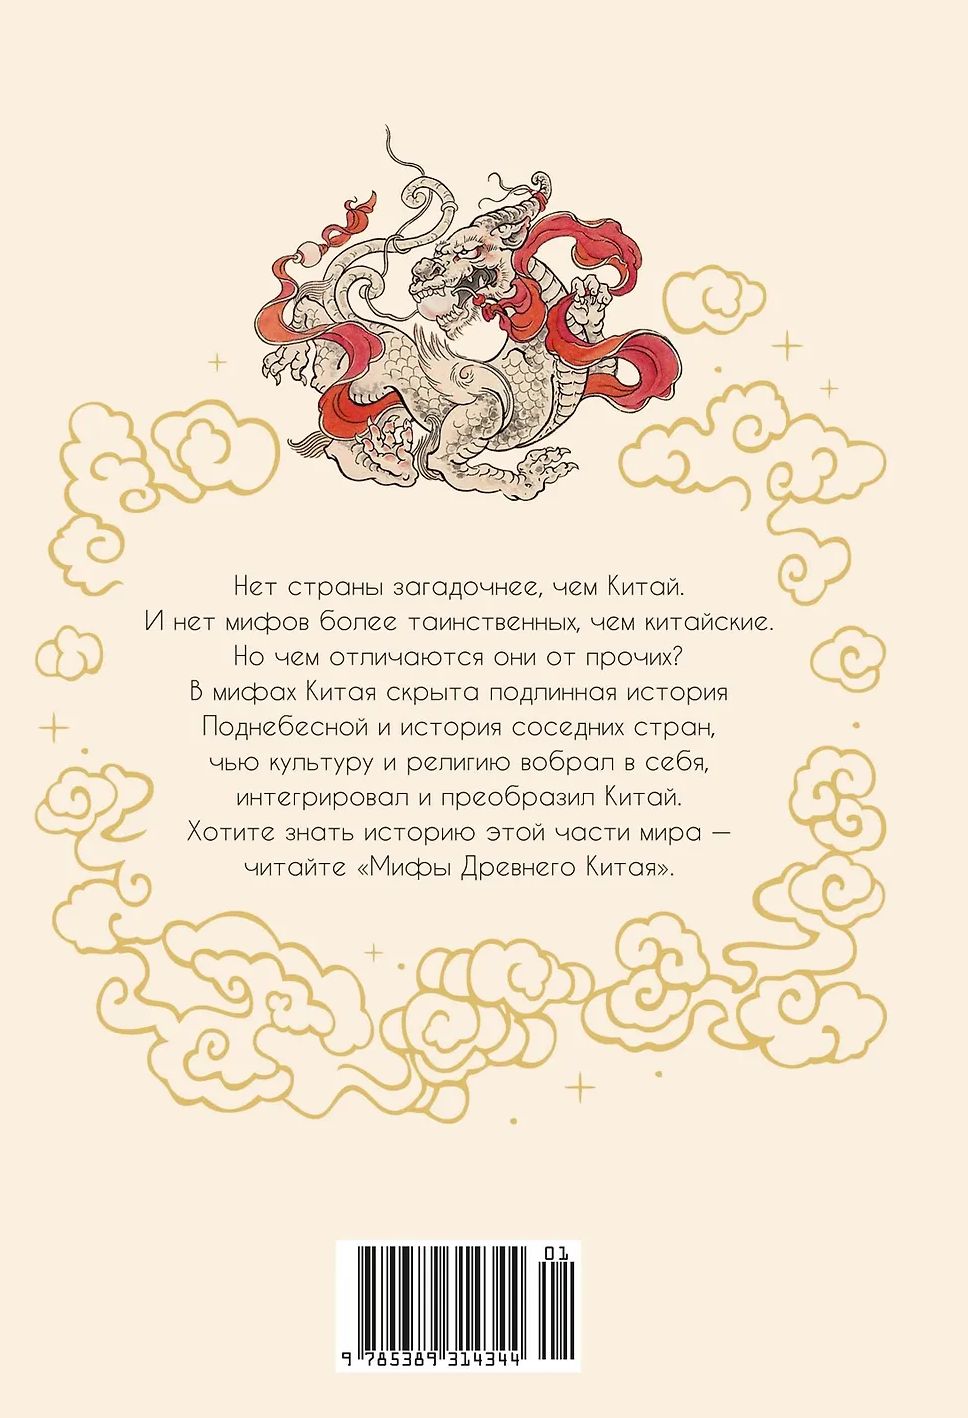 Нет страны загадочнее, чем Китай.
И нет мифов более таинственных, чем китайские.
Но чем отличаются они от прочих?
В мифах Китая скрыта подлинная история
Поднебесной и история соседних стран,
чью культуру и религию вобрал в себя,
интегрировал и преобразил Китай.
Хотите знать историю этой части мира —
читайте «Мифы Древнего Китая».
01
9 785389 314344